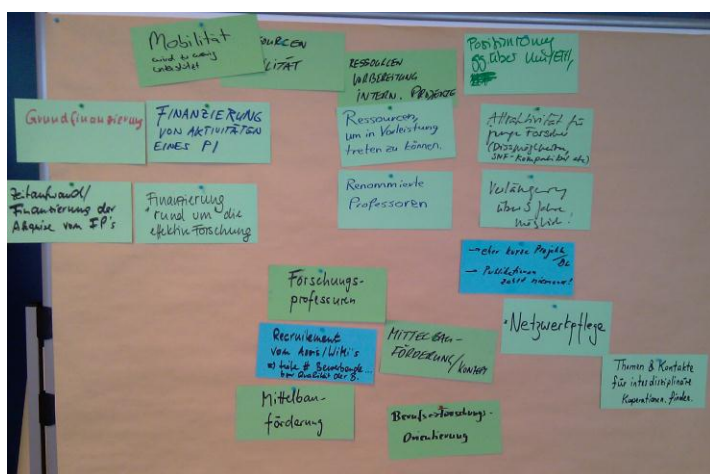 Mobilität
wird zu wenig
unterstützt
OURCEN
ILITÄT
RESSOURCEN
VORBEREITUNG
INTERN. PROJEKTE
Positionierung
ggüber Uni/ETH,
Grundfinanzierung
FINANZIERUNG
VON AKTIVITÄTEN
EINES PI
Ressourcen,
um in Vorleistung
treten zu können.
Attraktivität für
junge Forscher
(Dissmöglichkeiten,
SNF-Kompatibel etc)
Zeitaufwand/
Finanzierung der
Akquise von FP's
Finanzierung
rund um die
effektive Forschung
Renommierte
Professoren
Verlängerung
über 3 Jahre
möglich!
→ eher kurze Projekte
→ Publikationen
zahlt niemand!
Forschungs-
professuren
Recruitement
von Assis/WiMi's
hohe # Bewerbende...
Qualität der B.
MITTELBAU-
FÖRDERUNG/KONZEPT
Netzwerkpflege
Themen & Kontakte
für interdisziplinäre
Kooperationen finden.
Mittelbau-
förderung
Berufsforschungs-
Orientierung